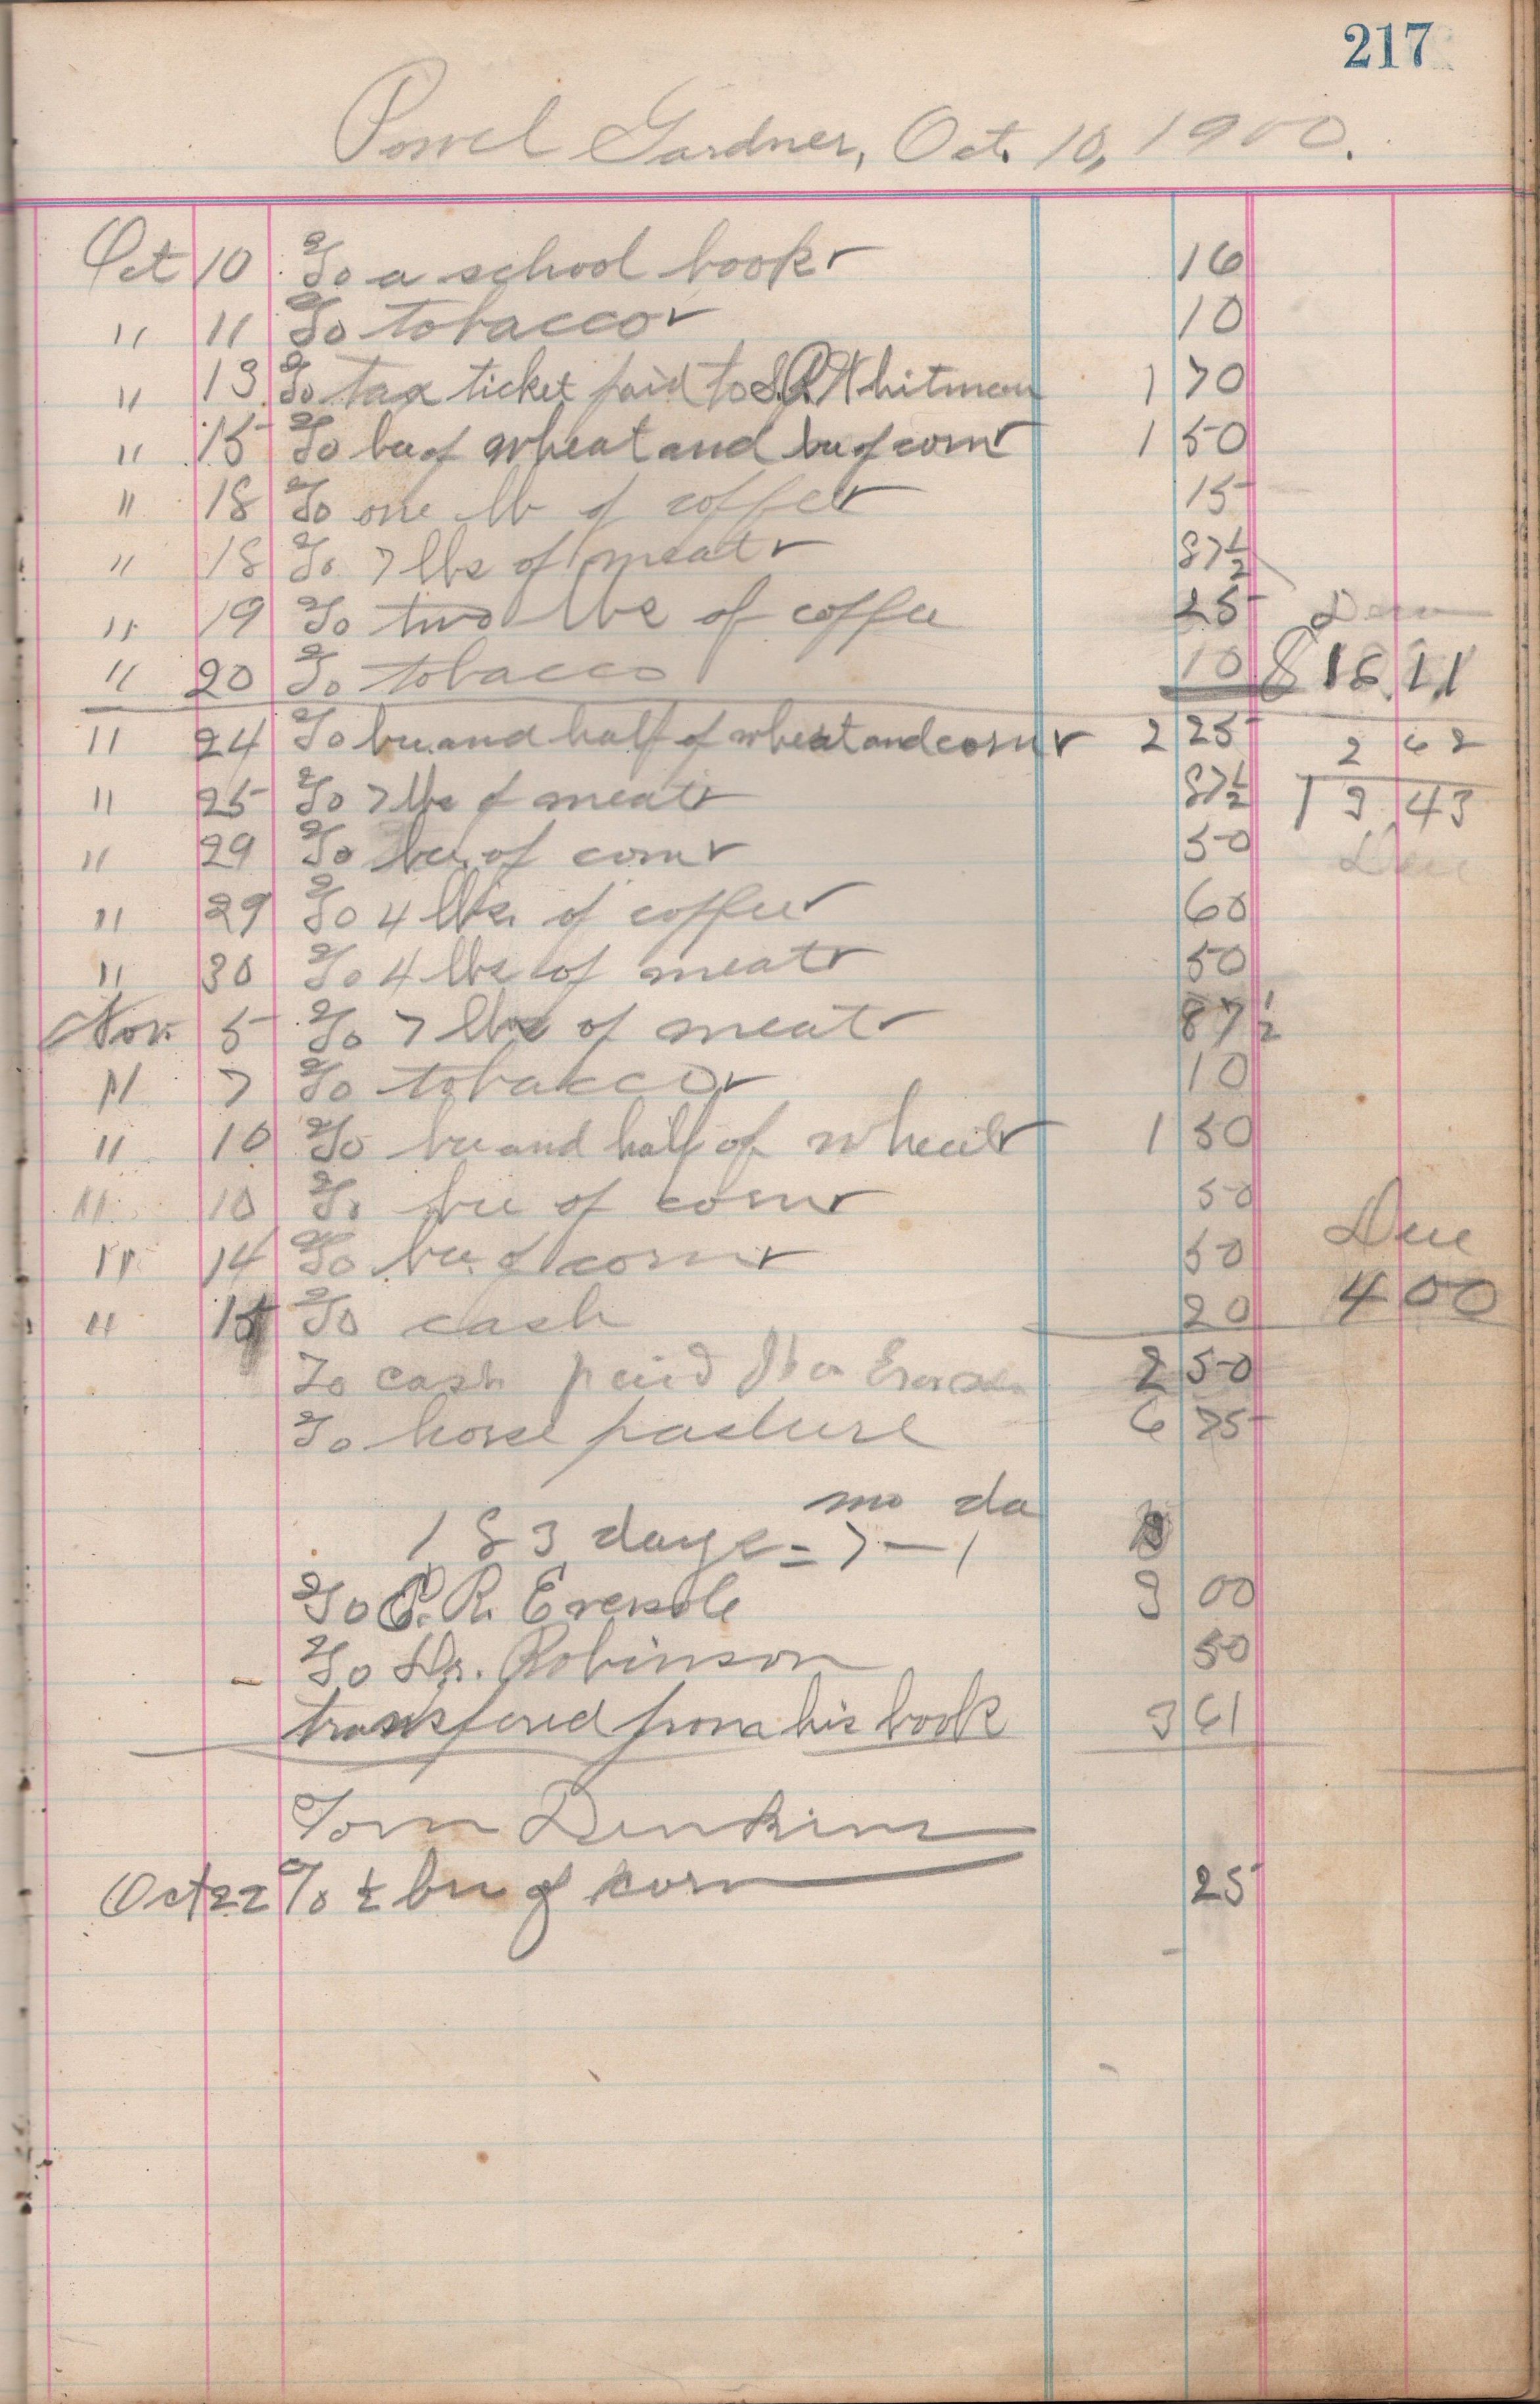 217
Powel Gardner, Oct. 10, 1900.
Oct 10 To a school book 16
" 11 To tobacco 10
" 13 To tax ticket paid to Whitman 1 70
" 15 To bu of wheat and bu of corn 1 50
" 18 To one lb of coffee 15
" 18 To 7 lbs of meat 87 1/2
" 19 To two lbs of coffee 25 Due
" 20 To tobacco 10 $ 16 11
" 24 To bu. and half of wheat and corn 2 25 2 68
" 25 To 7 lbs of meat 87 1/2 13 43
" 29 To bu. of corn 50 Due
" 29 To 4 lbs. of coffee 60
" 30 To 4 lbs of meat 50
Nov. 5 To 7 lbs of meat 87 1/2
" 7 To tobacco 10
" 10 To bu and half of wheat 1 50
" 10 To bu of corn 50 Due
" 14 To bu. of corn 50
" 15 To cash 20 4 00
To cash paid 2 50
To horse pasture 6 75
mo da
183 days = 7 - 1
To R. Eversole 3 00
To Dr. Robinson 50
transfered from his book 3 61
Tom Dunkins
Oct 22 To 1/2 bu of corn 25